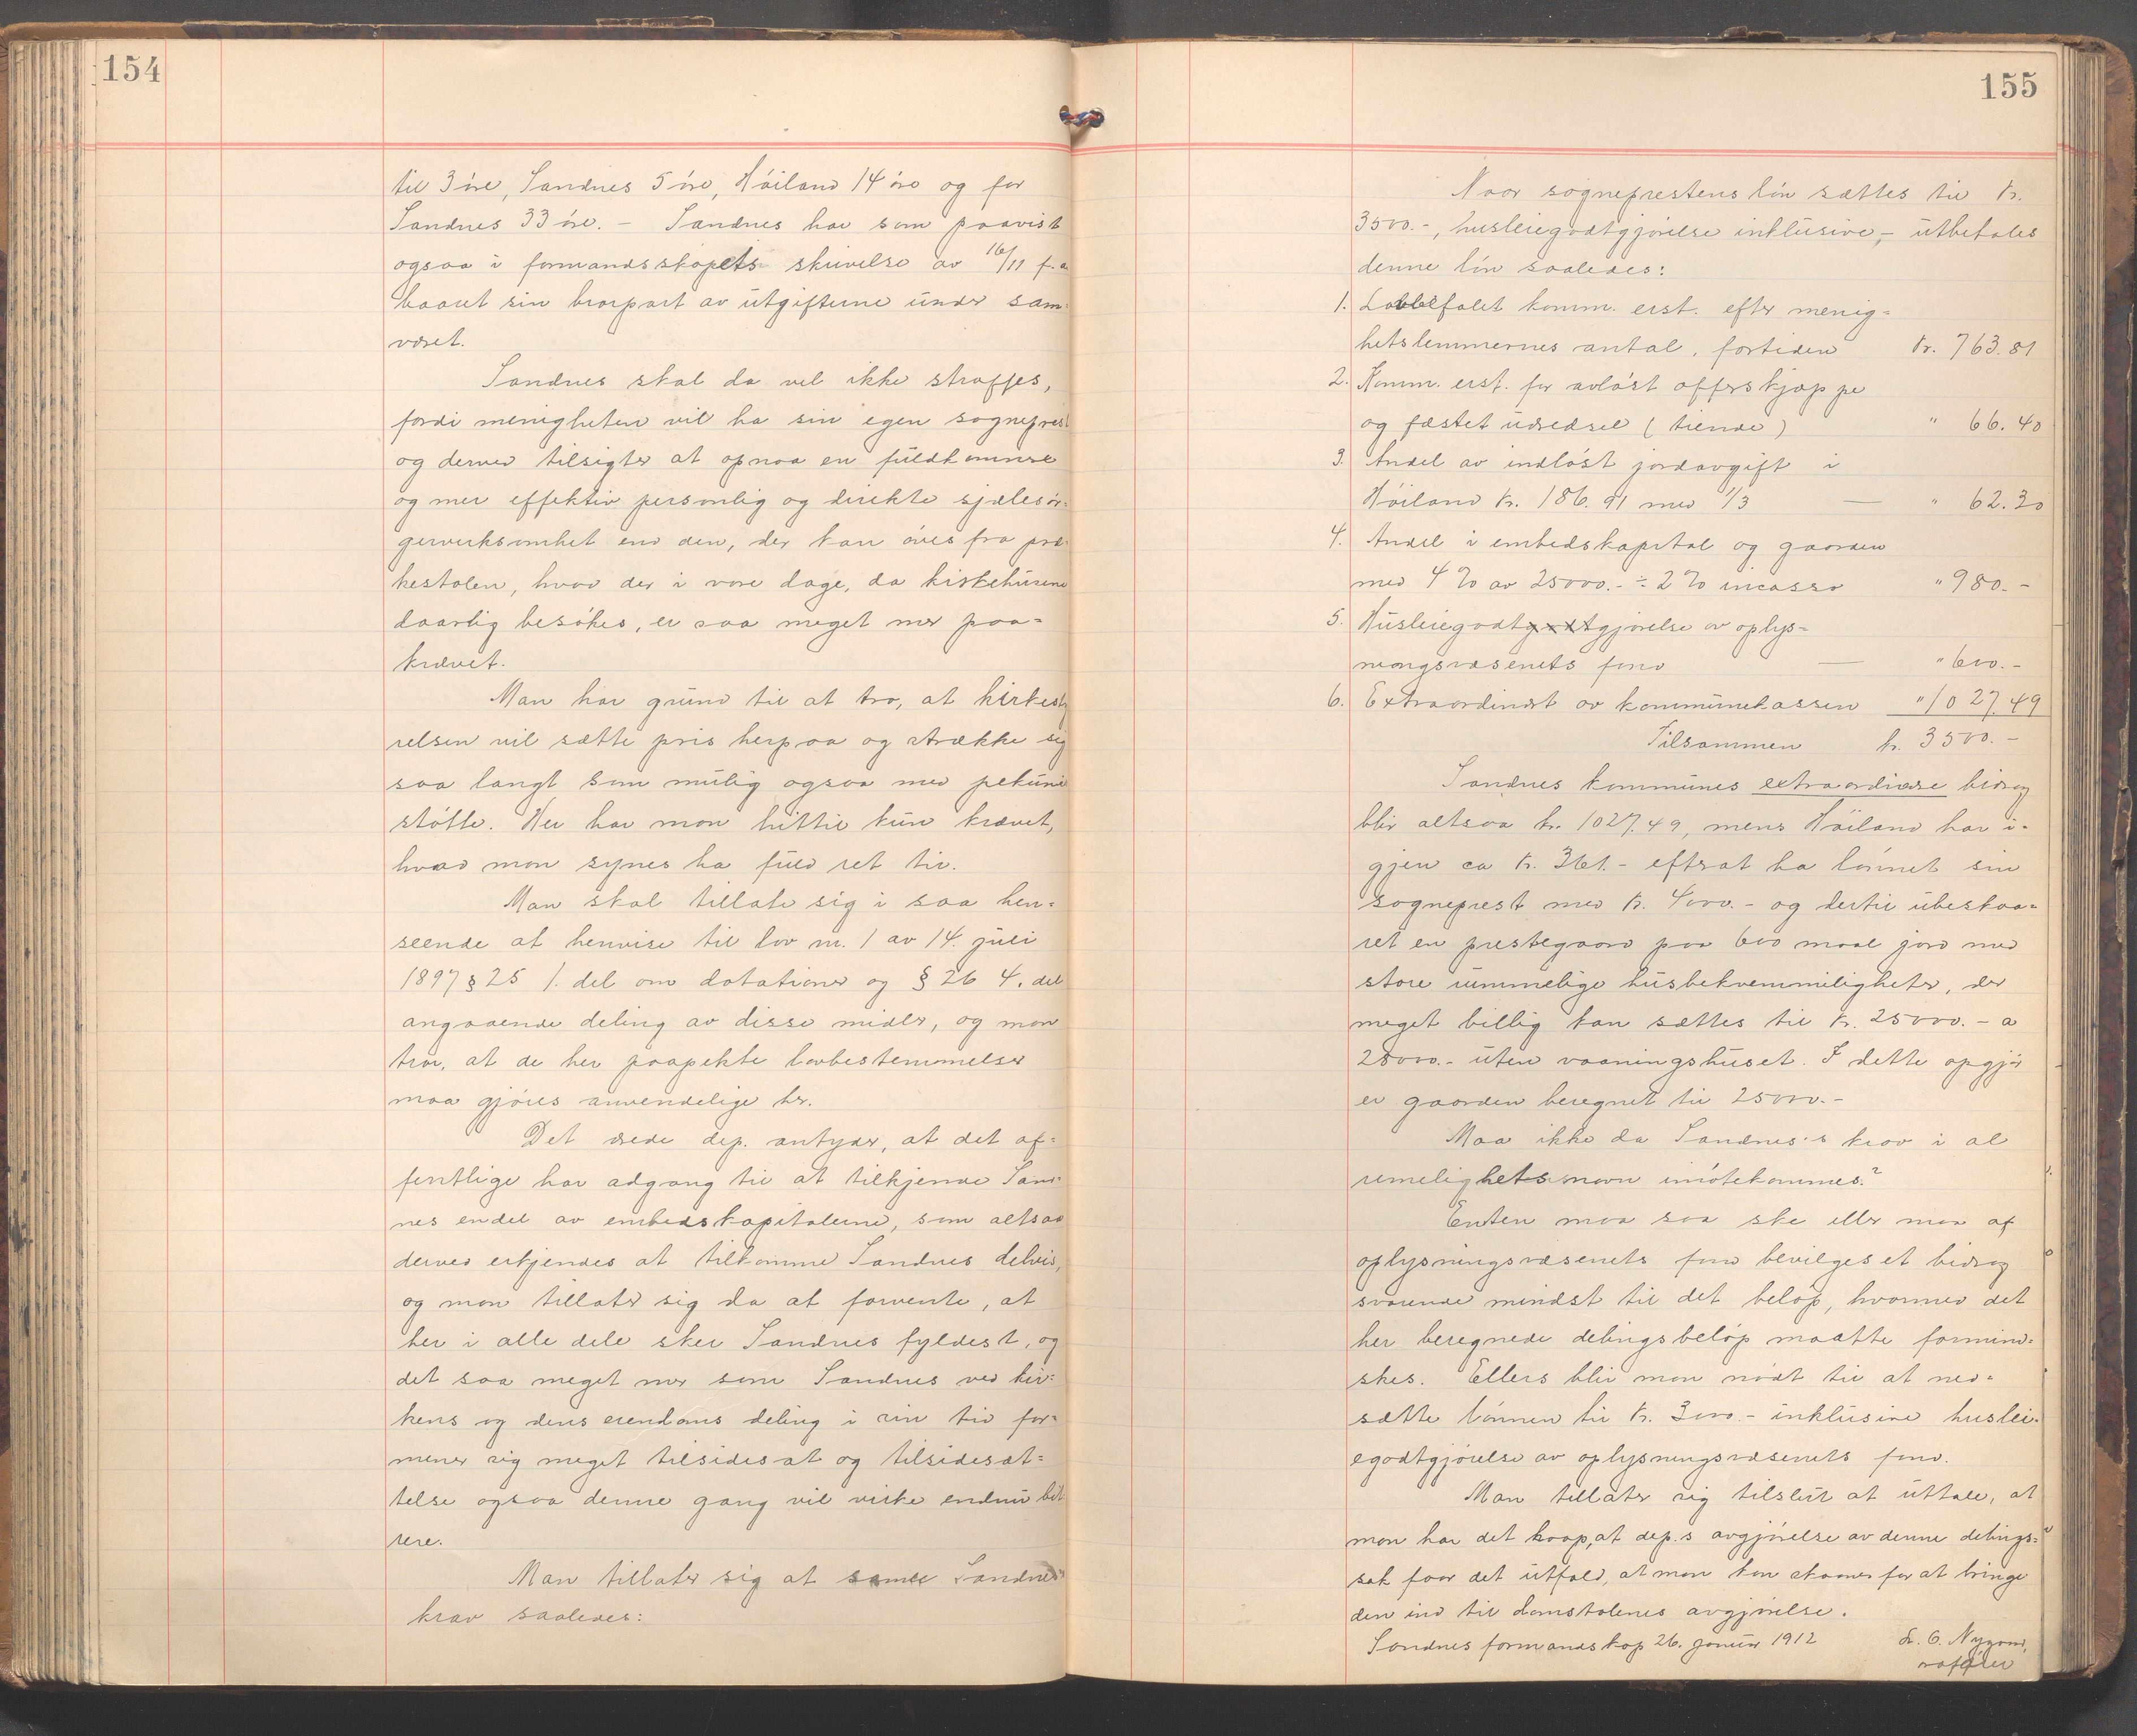 154
til 3 øre, Sandnes 5 øre, Høiland 14 øre og for
Sandnes 33 øre. – Sandnes har som paavist
ogsaa i formandsskapets skrivelse av 16/11 f. a.
baaret sin brorpart av utgifterne under sam=
været.
Sandnes skal da vel ikke straffes,
fordi menigheten vil ha sin egen sogneprest
og derved tilsigter at opnaa en fuldkomnere
og mer effektiv personlig og direkte sjælesør=
gervirksomhet end den, der kan øves fra præ=
kestolen, hvad der i vore dage, da kirkehusene
daarlig besøkes, er saa meget mer paa=
krævet.
Man har grund til at tro, at kirkesty
relsen vil sætte pris herpaa og strække sig
saa langt som mulig ogsaa med pekuniær
støtte. Her har man hittil kun krævet,
hvad man synes ha fuld ret til.
Man skal tillate sig i saa hen=
seende at henvise til lov nr. 1 av 14. juli
1897 § 25 1. del om dotationer og § 26 4. del
angaaende deling av disse midler, og man
tror, at de her paapekte lovbestemmelser
maa gjøres anvendelige her.
Det ærede dep. antyder, at det of=
fentlige har adgang til at tilkjende Sand=
nes endel av embedskapitalerne, som altsaa
derved erkjendes at tilkomme Sandnes delvis,
og man tillater sig da at forvente, at
her i alle dele sker Sandnes fyldest, og
det saa meget mer som Sandnes ved kir=
kens og dens eiendoms deling i sin tid for=
mener sig meget tilsidesat og tilsidesæt=
telse ogsaa denne gang vil virke endnu bit
rere.
Man tillater sig at samle Sandnes's
krav saaledes:
155
Naar sogneprestens løn sættes til kr.
3500.-, husleiegodtgjørelse inklusive, – utbetales
denne løn saaledes:
1. Lovbefalet komm. erst. efter menig=
hetslemmernes antal, fortiden kr. 763.81
2. Komm. erst. for avløst offerskjæppe
og fæstet udredsel (tiende) " 66.40
3. Andel av indløst jordavgift i
Høiland kr. 186.91 med 1/3 — " 62.30
4. Andel i embedskapital og gaarden
med 4 % av 25000.- ÷ 2 % incasso " 980.-
5. Husleiegodtgjørelse av oplys=
ningsvæsenets fond — " 600.-
6. Extraordinært av kommunekassen " 1027.49
Tilsammen kr. 3500.-
Sandnes kommunes extraordinære bidrag
blir altsaa kr. 1027.49, mens Høiland har i=
gjen ca kr. 361.- efterat ha lønnet sin
sogneprest med kr. 4000.- og dertil ubeskaa=
ret en prestegaard paa 600 maal jord med
store rummelige husbekvemmiligheter, der
meget billig kan sættes til kr. 25000.- a
28000.- uten vaaningshuset. I dette opgjør
er gaarden beregnet til 25000.-
Maa ikke da Sandnes's krav i al
rimelighets navn imøtekommes?
Enten maa saa ske eller maa af
oplysningsvæsenets fond bevilges et bidrag
svarende mindst til det beløp, hvormed det
her beregnede delingsbeløp maatte formind=
skes. Ellers blir man nødt til at ned=
sætte lønnen til kr. 3000.- inklusive huslei=
egodtgjørelse av oplysningsvæsenets fond.
Man tillater sig tilslut at uttale, at
man har det haap, at dep.s avgjørelse av denne delings=
sak faar det utfald, at man kan skaanes for at bringe
den ind til domstolenes avgjørelse.
Sandnes formandskap 26. januar 1912
O. Nygaard,
ordfører